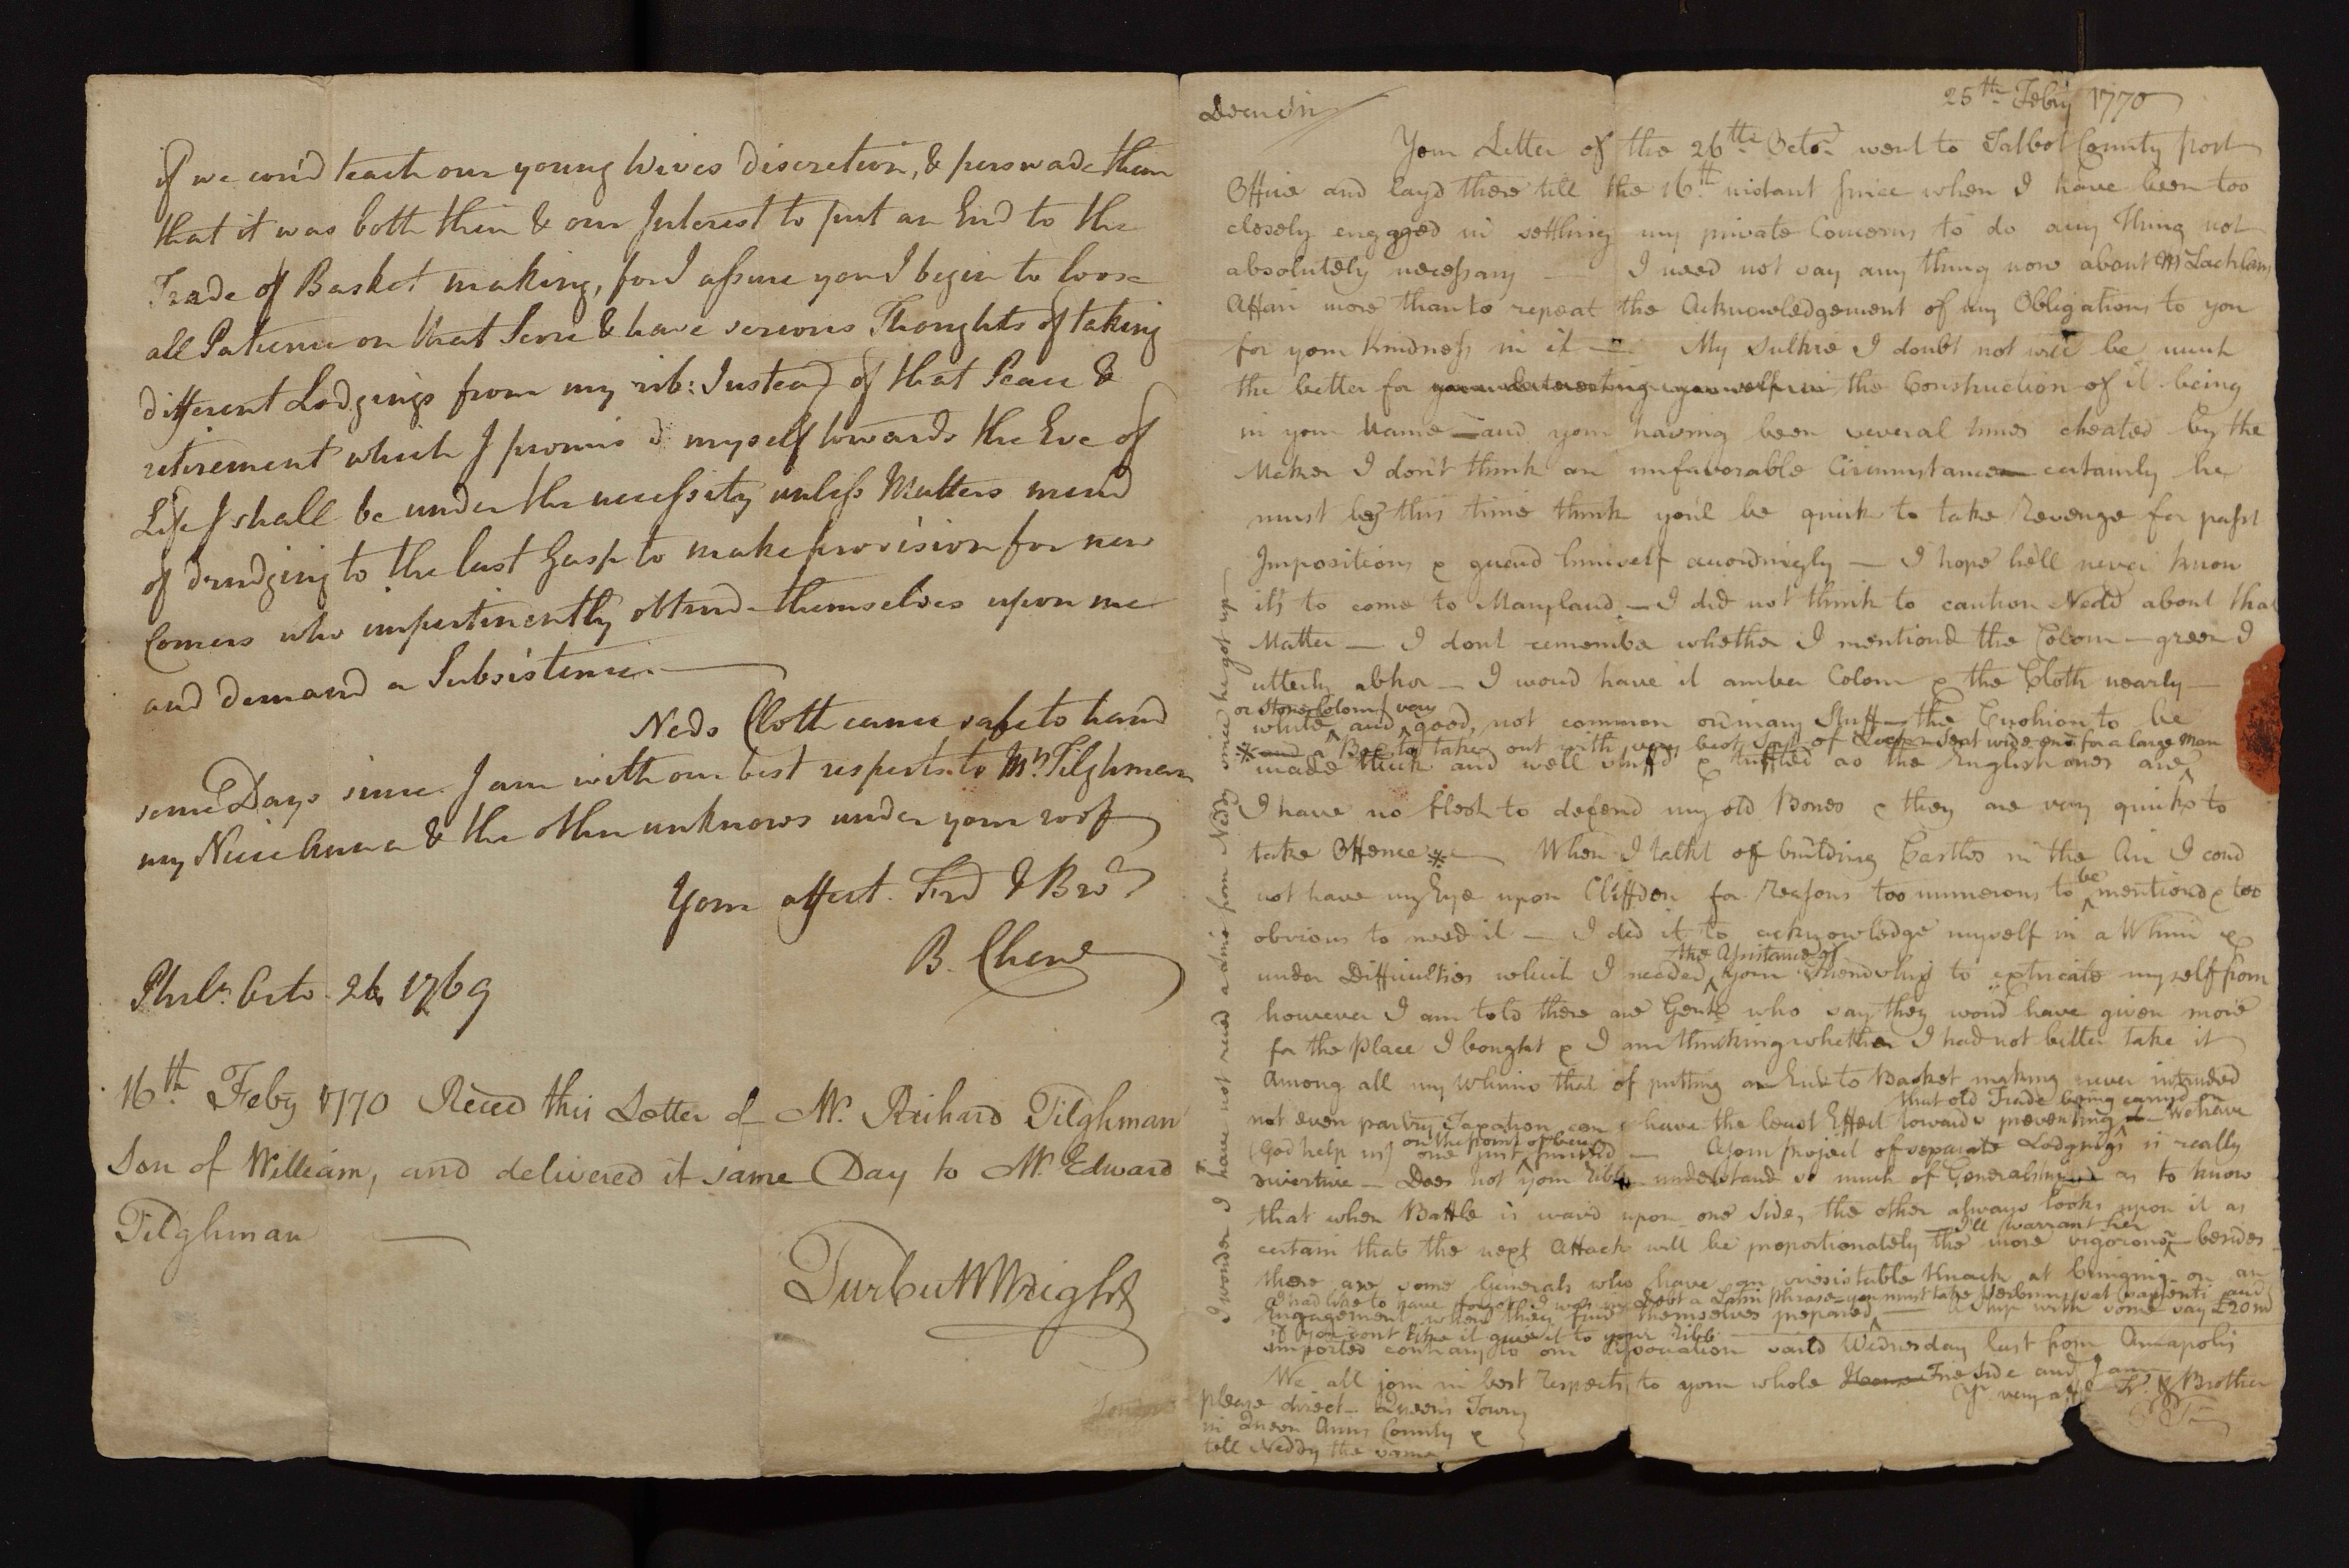 if we cou'd teach our young Wives discretion, & perswade them
that it was both their & our Interest to put an End to the
Trade of Basket making, for I assure you I begin to loose
all Patience on that Score & have serious Thoughts of taking
different Lodgings from my rib: Instead of that Peace &
retirement which I promis'd myself towards the Eve of
Life I shall be under the necessity unless Matters mend
of drudging to the last Gasp to make provision for new
Comers who impertinently obtrude themselves upon me
and demand a Subsistence.
Neds Cloth came safe to hand
some Days since. I am with our best respects to Mrs Tilghman
my Niece Anna & the other unknowns under your roof
Your affect. Frd & Bror
B. Chew
Phila. Octo. 26 1769
16th Feby 1770 Reced this Letter of Mr. Richard Tilghman
Son of William, and delivered it same Day to Mr Edward
Tilghman
Turbutt Wright
25th Febry 1770
Dear Sir
Your Letter of the 26th Octor went to Talbot County post
Office and layd there till the 16th instant since when I have been too
closely engaged in settling my private Concerns to do any Thing not
absolutely necessary — I need not say any thing now about McLachlans
Affair more than to repeat the Acknowledgement of my Obligations to you
for your Kindness in it — My Sulkie I doubt not will be much
the better for your interesting yourself in the Construction of it being
in your Name — and your having been several times cheated by the
Maker I don't think an unfavorable Circumstance certainly he
must by this time think you'l be quick to take Revenge for past
Impositions & guard himself accordingly — I hope he'll never know
it's to come to Maryland — I did not think to caution Nedd about that
Matter — I dont remember whether I mentiond the Colour — green I
utterly abhor — I woud have it amber Colour & the Cloth nearly —
or Stone Colour very
white and good, not common ordinary Stuff — the Cushion to be
* and a Box to take out with very best seat wide one for a large Man
made thick and well stuff'd & tuffted as the English ones are
I have no flesh to defend my old Bones & they are very quick to
take Offence * — When I talkt of building Castles in the Air I coud
not have my Eye upon Cliffden for Reasons too numerous to be mentiond & too
obvious to need it — I did it to acknowledge myself in a Whim &
the Assistance of
under Difficulties which I needed your Friendship to extricate myself from
however I am told there are Gentn who say they woud have given more
for the Place I bought & I am thinking whether I had not better take it
Among all my Whims that of putting an End to Basket making never intruded
that old Trade being carried on
not even paying Taxation can have the least Effect towards preventing it We have
on the point of being
(God help us) one just finished — Your Project of separate Lodgings is really
divertive — Does not your Ribb understand so much of Generalship as to know
that when Battle is waivd upon one side, the other always looks upon it as
I'll warrant her
certain that the next Attack will be proportionately the more vigorous — besides
there are some Generals who have an irresistable Knack at bringing on an
I had like to have forgot I was in debt a Latin Phrase — you must take Verbum sat sapienti and
Engagement when they find themselves prepared — A Ship with some say £20 m
if you dont like it give it to your Ribb
imported contrary to our Association saild Wednesday last from Annapolis
We all join in best Respects to your whole House Fire side and I am
Yr very afft Fr. & Brother
please direct — Queens Town
in Queen Anns County &
tell Neddy the same
I wonder I have not recd a Line from Neddy since he got up